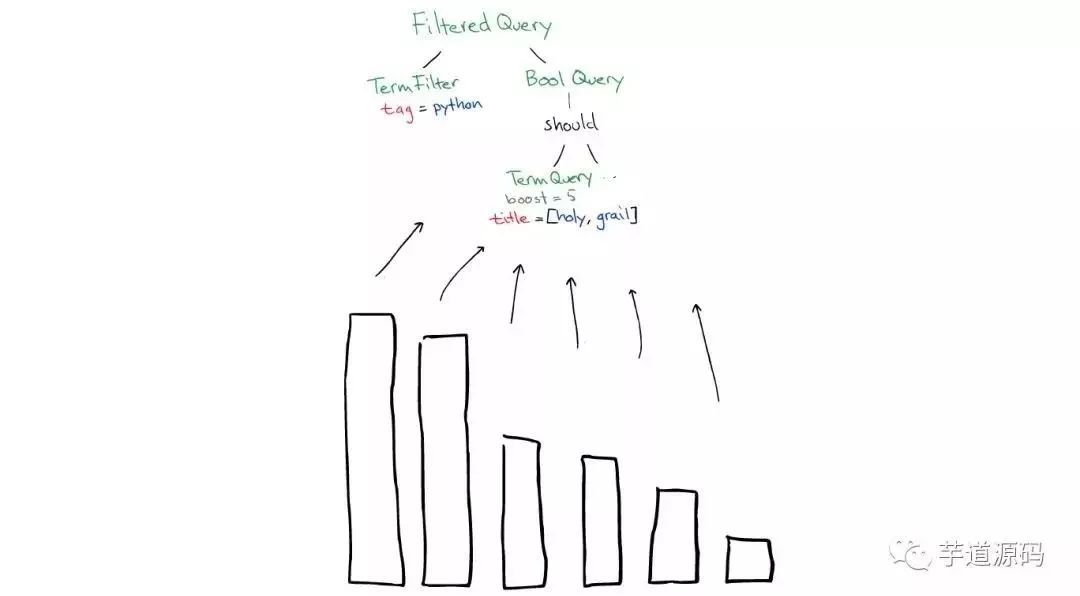 Filtered Query
TermFilter
tag = python
Bool Query
should
TermQuery ...
boost = 5
title = [holy, grail]
芋道源码